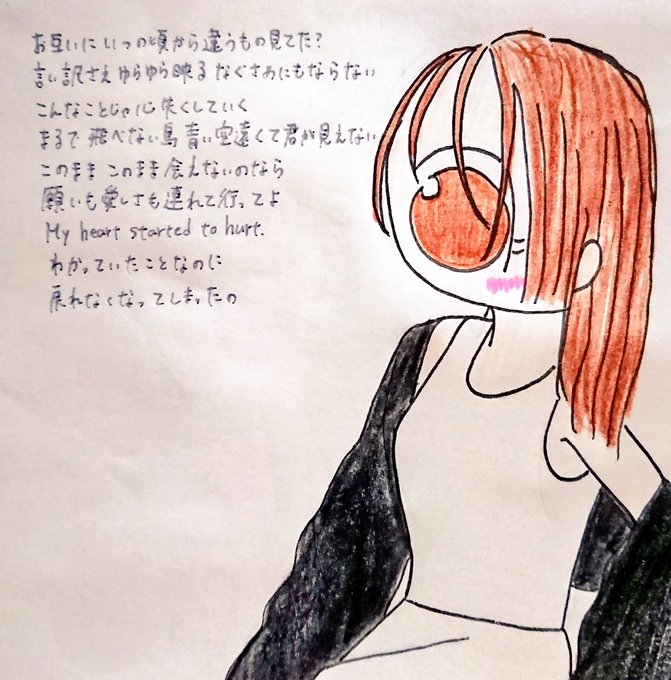 お互いにいつの頃から違うもの見てた?
言い訳さえゆらゆら映る なぐさめにもならない
こんなことじゃ心失くしていく
まるで飛べない鳥 青い空遠くて君が見えない
このまま このまま会えないのなら
願いも愛しさも連れて行ってよ
My heart started to hurt.
わかっていたことなのに
戻れなくなってしまったの